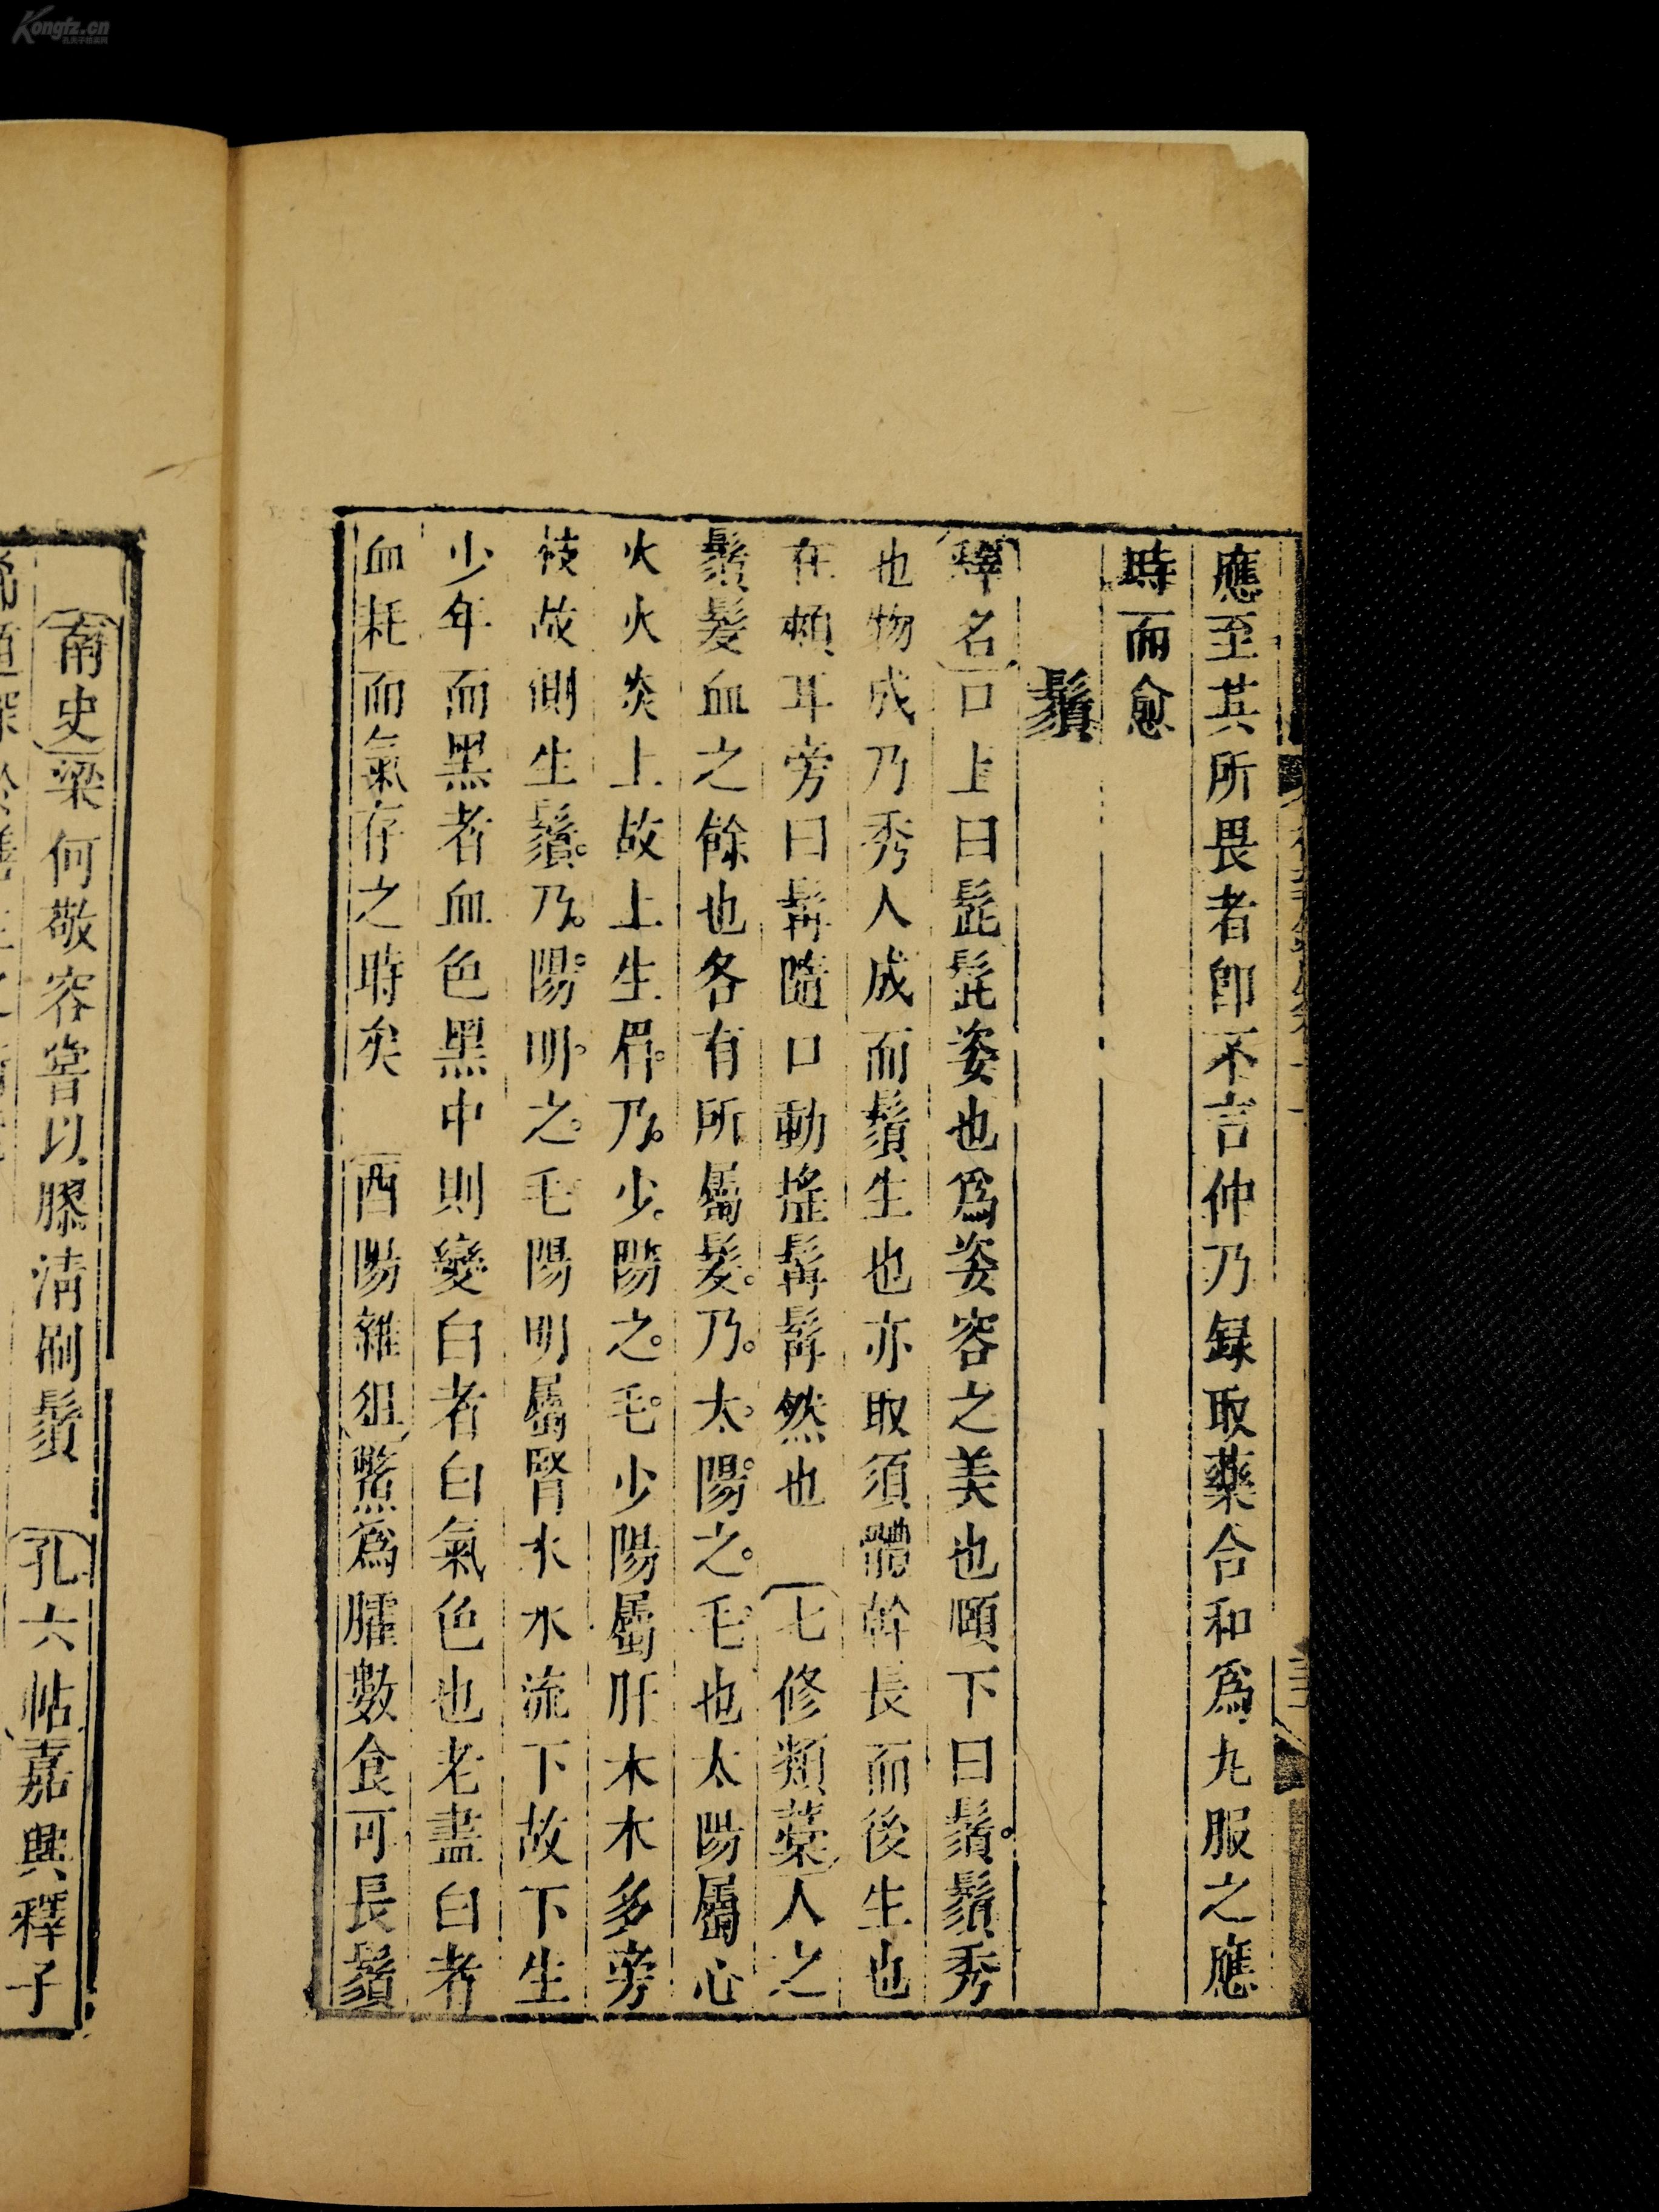 Kongfz.cn
應至其所畏者卽不言仲乃録取藥合和爲丸服之應
時而愈
鬚
釋名口上曰髭髭姿也爲姿容之美也頤下曰鬚。鬚秀
也物成乃秀人成而鬚生也亦取須體幹長而後生也
在頰耳旁曰髥隨口動搖髥髥然也 七修類藁人之
鬚髮血之餘也各有所屬髮。乃。太。陽。之。毛也太陽屬心
火火炎上故上生眉。乃。少。陽之。毛。少陽屬肝木木多旁
枝故側生鬚。乃。陽。明。之。毛陽明屬腎水水流下故下生
少年而黑者血色黑中則變白者白氣色也老盡白者
血耗而氣存之時矣 酉陽雜俎鱉爲臛數食可長鬚
南史梁何敬容嘗以膠清刷鬚 孔六帖嘉興釋子